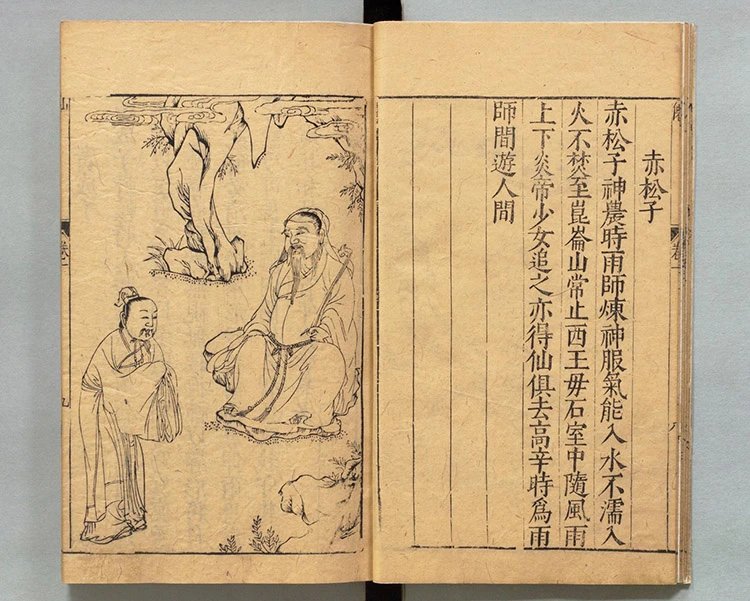 赤松子
赤松子神農時雨師煉神服氣能入水不濡入
火不焚至崑崙山常止西王毋石室中隨風雨
上下炎帝少女追之亦得仙俱去高辛時爲雨
師間遊人間
卷一
八
卷一
九